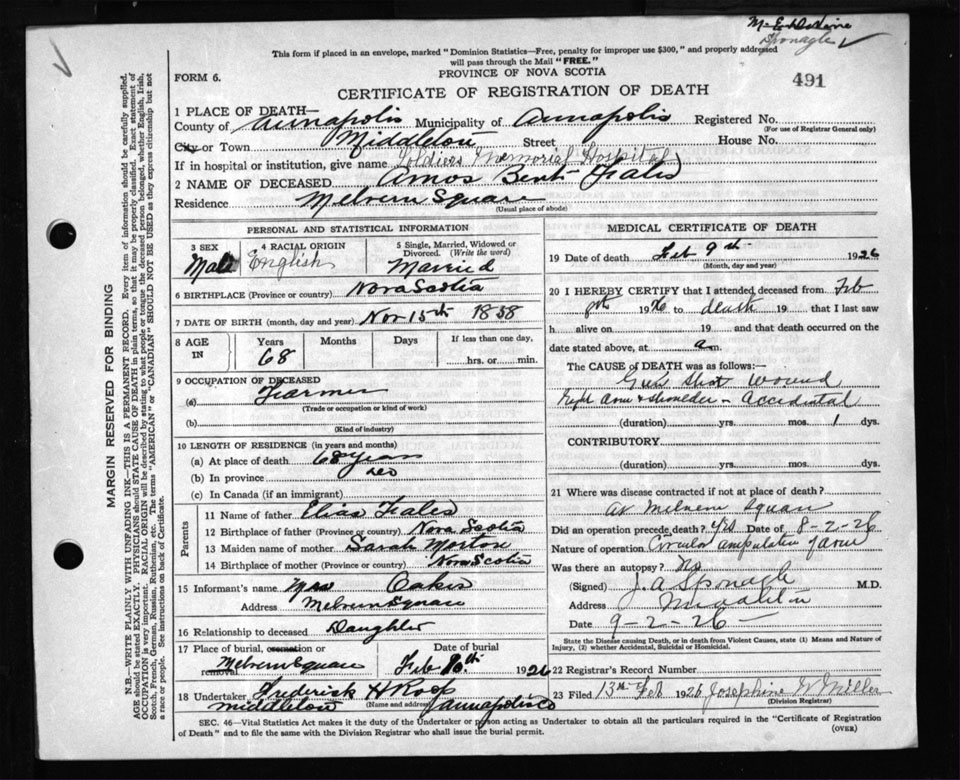 This form if placed in an envelope, marked "Dominion Statistics—Free, penalty for improper use $300," and properly addressed
will pass through the Mail "FREE."
FORM 6.
PROVINCE OF NOVA SCOTIA
491
CERTIFICATE OF REGISTRATION OF DEATH
MARGIN RESERVED FOR BINDING
N.B.—WRITE PLAINLY WITH UNFADING INK—THIS IS A PERMANENT RECORD. Every item of information should be carefully supplied.
AGE should be stated EXACTLY. PHYSICIANS should STATE CAUSE OF DEATH in plain terms, so that it may be properly classified. Exact statement of
OCCUPATION is very important. RACIAL ORIGIN will be described by stating to what people or tongue the deceased person belonged, whether English, Irish,
Scotch, French, German, Russian, Ruthenian, etc. The terms "AMERICAN" or "CANADIAN" SHOULD NOT BE USED as they express citizenship but not
a race or people. See instructions on back of Certificate.
1 PLACE OF DEATH—
County of Annapolis Municipality of Annapolis Registered No.
(For use of Registrar General only)
City or Town Middleton Street House No.
If in hospital or institution, give name Soldiers Memorial Hospital
2 NAME OF DECEASED Amos Bent Fales
Residence Melvern Square
(Usual place of abode)
PERSONAL AND STATISTICAL INFORMATION
3 SEX Male
4 RACIAL ORIGIN English
5 Single, Married, Widowed or Divorced. (Write the word) Married
6 BIRTHPLACE (Province or country) Nova Scotia
7 DATE OF BIRTH (month, day and year) Nov 15th 1858
8 AGE IN Years 68 Months Days If less than one day, hrs. or min.
9 OCCUPATION OF DECEASED
(a) Farmer
(Trade or occupation or kind of work)
(b)
(Kind of industry)
10 LENGTH OF RESIDENCE (in years and months)
(a) At place of death 68 years
(b) In province do
(c) In Canada (if an immigrant)
Parents
11 Name of father Elias Fales
12 Birthplace of father (Province or country) Nova Scotia
13 Maiden name of mother Sarah Morton
14 Birthplace of mother (Province or country) Nova Scotia
15 Informant's name Mrs Oakes
Address Melvern Square
16 Relationship to deceased Daughter
17 Place of burial, cremation or removal Melvern Square
Date of burial Feb 10th 1926
18 Undertaker Frederick H Roop
Middleton (Name and address) Annapolis Co
MEDICAL CERTIFICATE OF DEATH
19 Date of death Feb 9th 1926
(Month, day and year)
20 I HEREBY CERTIFY that I attended deceased from Feb
8th 1926 to death 19 that I last saw
h alive on 19 and that death occurred on
date stated above, at a m.
The CAUSE OF DEATH was as follows:—
Gun shot wound
right arm & shoulder – Accidental
(duration) yrs. mos. 1 dys.
CONTRIBUTORY
(duration) yrs. mos. dys.
21 Where was disease contracted if not at place of death?
At Melvern Square
Did an operation precede death? yes Date of 8-2-26
Nature of operation Circular amputation of arm
Was there an autopsy? No
(Signed) J. A Sponagle M.D.
Address Middleton
Date 9-2-26
State the Disease causing Death, or in death from Violent Causes, state (1) Means and Nature of
Injury, (2) whether Accidental, Suicidal or Homicidal.
22 Registrar's Record Number
23 Filed 13th Feb 1926 Josephine W Miller
(Division Registrar)
SEC. 46—Vital Statistics Act makes it the duty of the Undertaker or person acting as Undertaker to obtain all the particulars required in the "Certificate of Registration
of Death" and to file the same with the Division Registrar who shall issue the burial permit.
(OVER)